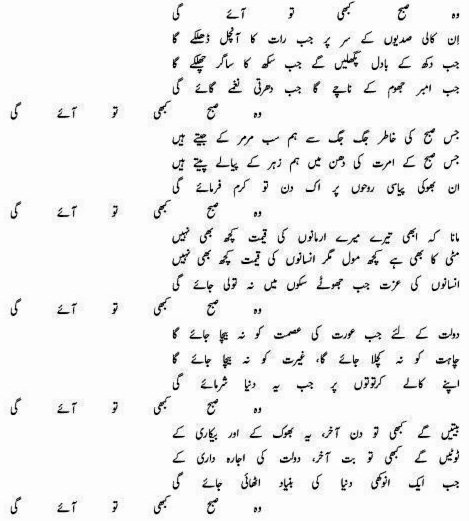 وہ صبح کبھی تو آئے گی
اِن کالی صدیوں کے سر پر جب رات کا آنچل ڈھلکے گا
جب دکھ کے بادل پگھلیں گے جب سکھ کا ساگر چھلکے گا
جب امبر جھوم کے ناچے گا جب دھرتی نغمے گائے گی
وہ صبح کبھی تو آئے گی
جس صبح کی خاطر جگ جگ سے ہم سب مر مر کے جیتے ہیں
جس صبح کے امرت کی دھن میں ہم زہر کے پیالے پیتے ہیں
ان بھوکی پیاسی روحوں پر اک دن تو کرم فرمائے گی
وہ صبح کبھی تو آئے گی
مانا کہ ابھی تیرے میرے ارمانوں کی قیمت کچھ بھی نہیں
مٹی کا بھی ہے کچھ مول مگر انسانوں کی قیمت کچھ بھی نہیں
انسانوں کی عزت جب جھوٹے سکوں میں نہ تولی جائے گی
وہ صبح کبھی تو آئے گی
دولت کے لئے جب عورت کی عصمت کو نہ بیچا جائے گا
چاہت کو نہ کچلا جائے گا، غیرت کو نہ بیچا جائے گا
اپنے کالے کرتوتوں پر جب یہ دنیا شرمائے گی
وہ صبح کبھی تو آئے گی
بیتیں گے کبھی تو دن آخر، یہ بھوک کے اور بیکاری کے
ٹوٹیں گے کبھی تو بت آخر، دولت کی اجارہ داری کے
جب ایک انوکھی دنیا کی بنیاد اٹھائی جائے گی
وہ صبح کبھی تو آئے گی